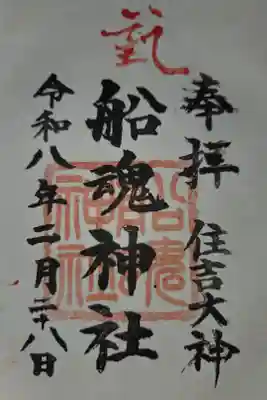 奉拝
住吉大神
船魂神社
令和八年二月二十八日